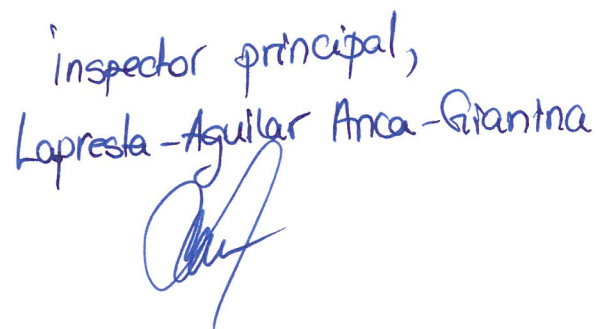 Inspector principal,
Lapresta-Aguilar Anca-Gianina